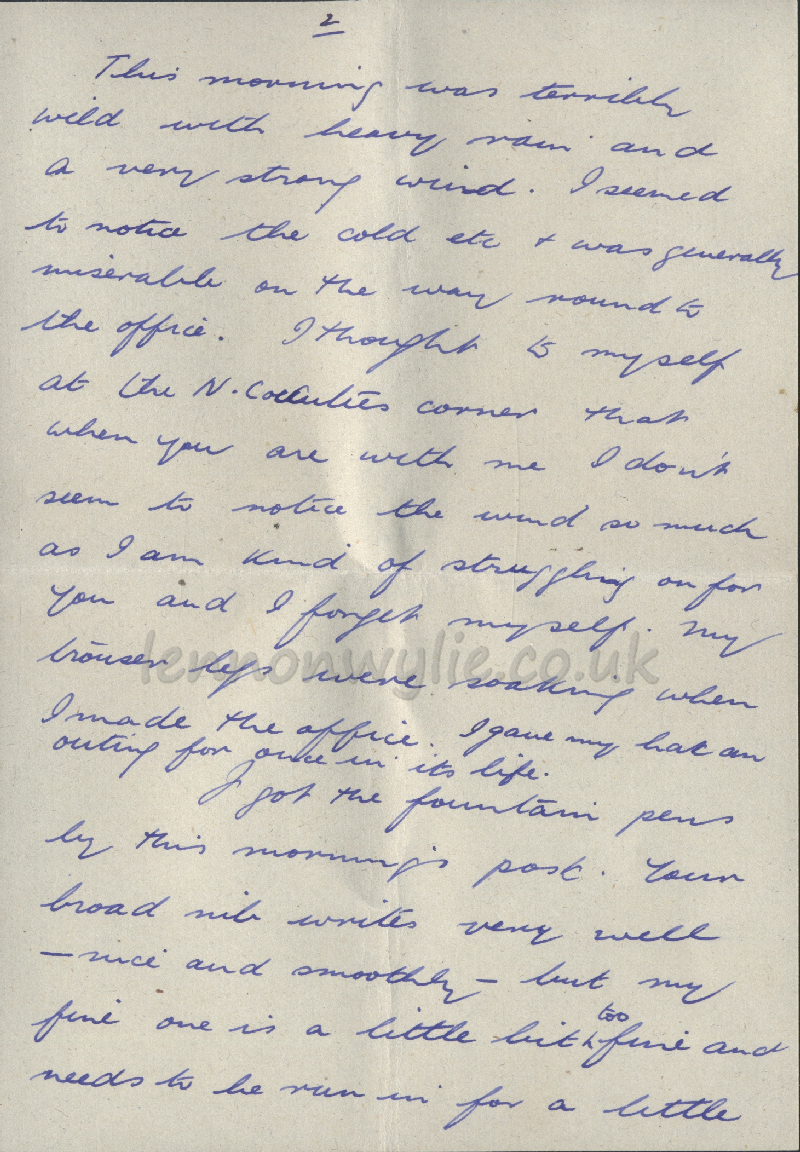 2
This morning was terribly
wild with heavy rain and
a very strong wind. I seemed
to notice the cold etc + was generally
miserable on the way round to
the office. I thought to myself
at the N. Counties corner that
when you are with me I don't
seem to notice the wind so much
as I am kind of struggling on for
you and I forget myself. My
trouser legs were soaking when
I made the office. I gave my hat an
outing for once in its life.
I got the fountain pens
by this morning's post. Your
broad nib writes very well
— nice and smoothly — but my
fine one is a little bit too fine and
needs to be run in for a little
lennonwylie.co.uk